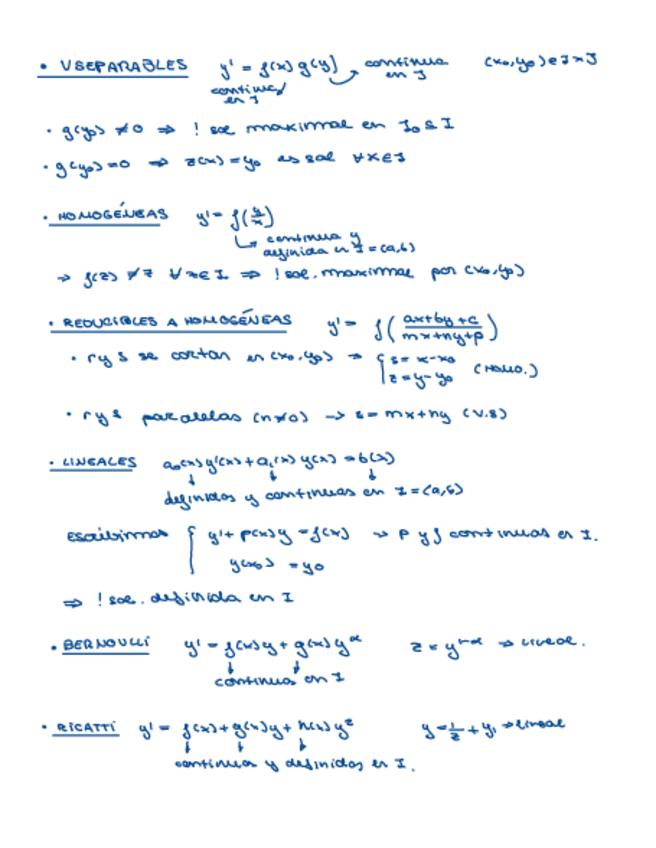 • V SEPARABLES y' = f(x) g(y) → continua en J (x₀,y₀) ∈ I×J
continua en I
• g(y₀) ≠ 0 ⇒ ! sol maximal en I₀ ⊆ I
• g(y₀) = 0 ⇒ z(x) = y₀ es sol ∀x∈I
• HOMOGÉNEAS y' = f(y/x)
↳ continua y
definida en I = (a,b)
→ f(z) ≠ z ∀x∈I ⇒ ! sol. maximal por (x₀,y₀)
• REDUCIBLES A HOMOGÉNEAS y' = f((ax+by+c)/(mx+ny+p))
• r y s se cortan en (x₀,y₀) ⇒ { s = x-x₀
z = y-y₀ (HOMO.)
• r y s paralelas (n≠0) → s = mx+ny (V.S)
• LINEALES a₀(x)y'(x)+a₁(x)y(x)=b(x)
↓ ↓ ↓
definidos y continuas en I=(a,b)
escribimos { y'+p(x)y=f(x) → p y f continuas en I.
y(x₀) = y₀
⇒ ! sol. definida en I
• BERNOULLI y' = f(x)y + g(x)y^α z = y^1-α ⇒ lineal.
↓ ↓
continuas en I
• RICATTI y' = f(x)+g(x)y+h(x)y² y = 1/z + y₁ ⇒ lineal
↓ ↓ ↓
continua y definidas en I.